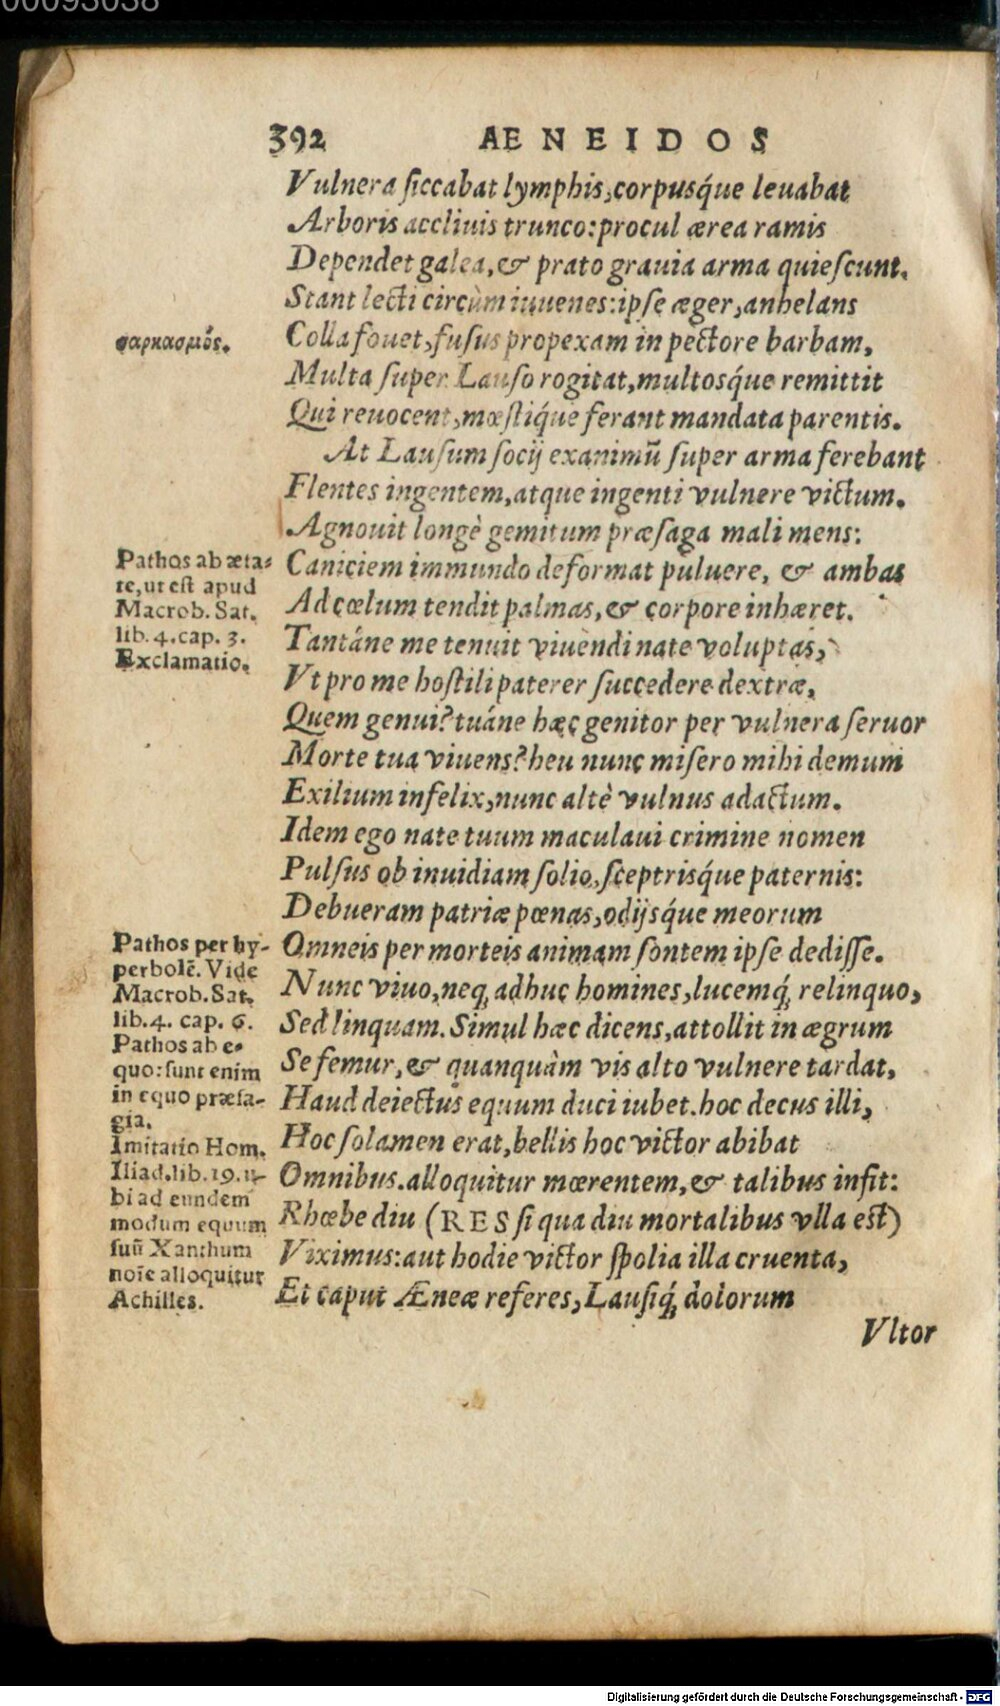 00093038
392 AENEIDOS
Vulnera ſiccabat lymphis, corpusq́ue leuabat
Arboris accliuis trunco: procul ærea ramis
Dependet galea, & prato grauia arma quieſcunt.
Stant lecti circùm iuuenes: ipſe æger, anhelans
σαρκασμός.
Colla fouet, fuſus propexam in pectore barbam,
Multa ſuper Lauſo rogitat, multosq́ue remittit
Qui reuocent, mœſtiq́ue ferant mandata parentis.
At Lauſum ſocij exanimũ ſuper arma ferebant
Flentes ingentem, atque ingenti vulnere victum.
Agnouit longè gemitum præſaga mali mens:
Pathos ab æta-
te, ut eſt apud
Macrob. Sat.
lib. 4. cap. 3.
Exclamatio.
Caniciem immundo deformat puluere, & ambas
Ad cœlum tendit palmas, & corpore inhæret.
Tantáne me tenuit viuendi nate voluptas,
Vt pro me hoſtili paterer ſuccedere dextræ,
Quem genui? tuáne hæc genitor per vulnera ſeruor
Morte tua viuens? heu nunc miſero mihi demum
Exilium infelix, nunc altè vulnus adactum.
Idem ego nate tuum maculaui crimine nomen
Pulſus ob inuidiam ſolio, ſceptrisq́ue paternis:
Debueram patriæ pœnas, odijsq́ue meorum
Pathos per hy-
perbolẽ. Vide
Macrob. Sat.
lib. 4. cap. 6.
Pathos ab e-
quo: ſunt enim
in equo præſa-
gia.
Imitatio Hom.
Iliad. lib. 19. u-
bi ad eundem
modum equum
ſuũ Xanthum
noīe alloquitur
Achilles.
Omneis per morteis animam ſontem ipſe dediſſe.
Nunc viuo, neq; adhuc homines, lucemq́; relinquo,
Sed linquam. Simul hæc dicens, attollit in ægrum
Se femur, & quanquàm vis alto vulnere tardat,
Haud deiectus equum duci iubet. hoc decus illi,
Hoc ſolamen erat, bellis hoc victor abibat
Omnibus. alloquitur mœrentem, & talibus infit:
Rhœbe diu (RES ſi qua diu mortalibus vlla eſt)
Viximus: aut hodie victor ſpolia illa cruenta,
Et caput Æneæ referes, Lauſiq́; dolorum
Vltor
Digitalisierung gefördert durch die Deutsche Forschungsgemeinschaft - DFG